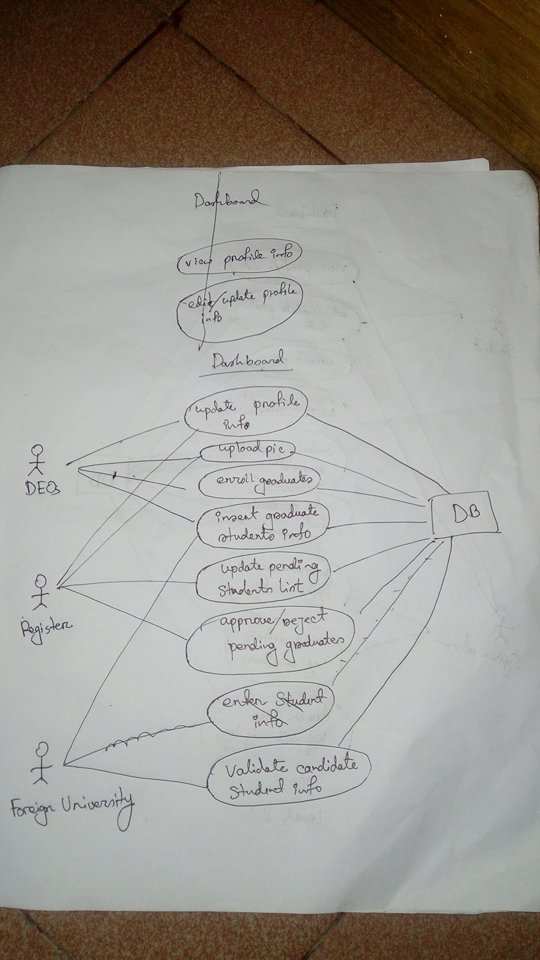 Dashboard
view profile info
edit/update profile
info
Dashboard
update profile
info
upload pic
enroll graduates
insert graduate
students info
update pending
Students list
approve/reject
pending graduates
enter Student
info
Validate candidate
Student info
DEOs
Register
Foreign University
DB